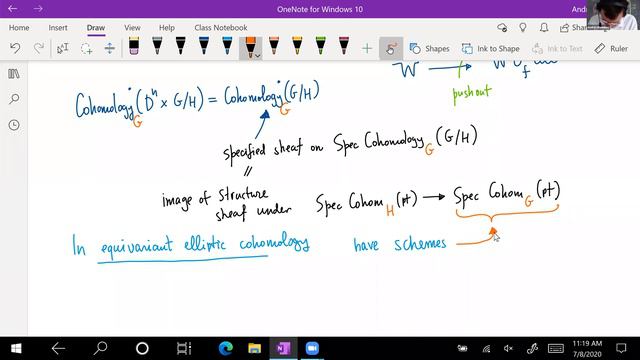 OneNote for Windows 10
And
Home
Insert
Draw
View
Help
Class Notebook
Shapes
Ink to Shape
Ink to Text
Ruler
W → W ∪f
pushout
Cohomology•G (Dⁿ × G/H) = Cohomology•G (G/H)
specified sheaf on Spec CohomologyG (G/H)
=
image of structure sheaf under
Spec CohomH (pt) → Spec CohomG (pt)
In equivariant elliptic cohomology have schemes
11:19 AM
7/8/2020